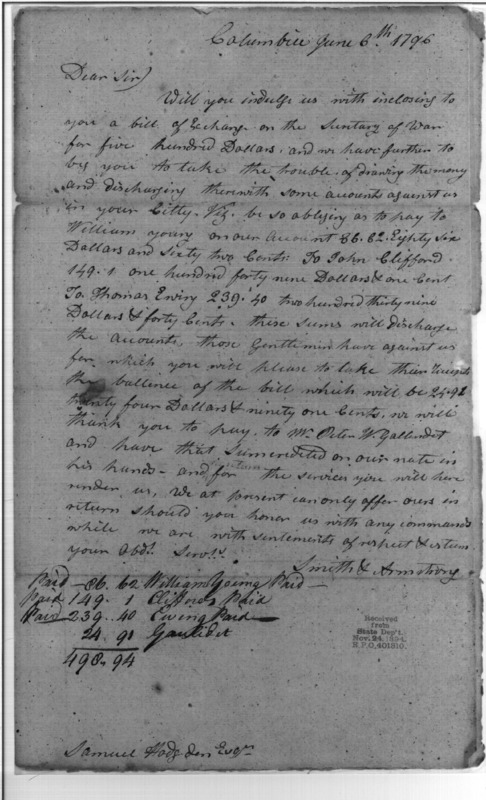 Columbill June 6th 1796
Dear Sir)
Will you indulge us with inclosing to
you a bill of Exchange on the Suntary of War
for five hundred Dollars. and we have further to
beg you to take the trouble of drawing the money
and discharging therewith some accounts against us
in your Citty. Viz. be so abliging as to pay to
William young on our account 86.62 Eighty Six
Dollars and Sixty two Cents. To John Clifford.
149.1 one hundred forty nine Dollars & one Cent
To Thomas Ewing 239.40 two hundred thirty nine
Dollars & forty Cents. these sums will discharge
the accounts those Gentlemen have against us
for which you will please to take their Receipts
the ballence of the bill which will be 24.91
twenty four Dollars & ninety one Cents, we will
thank you to pay to Mr. Peter W. Gallaudet
and have that Sum credited on our note in
his hands - and for return the services you will here
render us, We at present can only offer ours in
return should you honor us with any commands
while we are with sentements of respect & esteem
your Obdt. Servts.
Smith & Armstrong
Paid - 86. 62 William Young Paid -
Paid 149. 1 Cliffords Paid
Paid 239. 40 Ewing Paid
24. 91 Gauledet
498. 94
Received
from
State Dep't.
Nov. 24, 1894.
R.P.O, 401810.
Samuel Hodgden Esqr